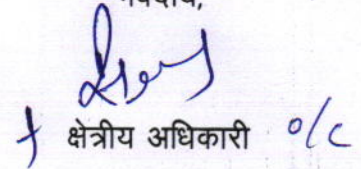 भवदीय,
क्षेत्रीय अधिकारी o/c